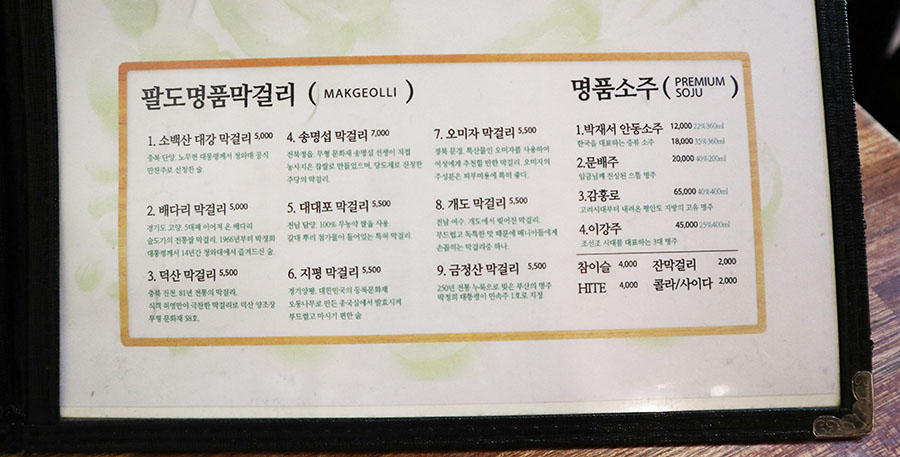 팔도명품막걸리 ( MAKGEOLLI )
1. 소백산 대강 막걸리 5,000
충북 단양. 노무현 대통령께서 청와대 공식
만찬주로 선정한 술.
2. 배다리 막걸리 5,000
경기도 고양. 5대째 이어져 온 배다리
술도가의 전통쌀 막걸리. 1966년부터 박정희
대통령께서 14년간 청와대에서 즐겨드신 술.
3. 덕산 막걸리 5,500
충북 진천. 81년 전통의 막걸리.
식객 허영만이 극찬한 막걸리로 덕산 양조장
무형 문화재 58호.
4. 송명섭 막걸리 7,000
전북정읍. 무형 문화재 송명섭 선생이 직접
농사지은 찹쌀로 만들었으며, 당도제로 진정한
주당의 막걸리.
5. 대대포 막걸리 5,500
전남 담양. 100% 무농약 쌀을 사용.
갈대 뿌리 첨가물이 들어있는 특허 막걸리.
6. 지평 막걸리 5,500
경기양평. 대한민국의 등록문화재
오동나무로 만든 종국실에서 발효시켜
부드럽고 마시기 편한 술
7. 오미자 막걸리 5,500
경북 문경. 특산물인 오미자를 사용하여
여성에게 추천할 만한 막걸리. 오미자의
주성분은 피부미용에 특히 좋다.
8. 개도 막걸리 5,500
전남 여수. 개도에서 빚어진 막걸리.
부드럽고 독특한 맛 때문에 매니아들에게
손꼽히는 막걸리중 하나.
9. 금정산 막걸리 5,500
250년 전통 누룩으로 빚은 부산의 명주
박정희 대통령이 민속주 1호로 지정
명품소주 ( PREMIUM SOJU )
1.박재서 안동소주 12,000 22%360ml
한국을 대표하는 증류 소주 18,000 35%360ml
2.문배주 20,000 40%200ml
임금님께 진상된 으뜸 명주
3.감홍로 65,000 40%400ml
고려시대부터 내려온 평안도 지방의 고유 명주
4.이강주 45,000 25%400ml
조선조 시대를 대표하는 3대 명주
참이슬 4,000 잔막걸리 2,000
HITE 4,000 콜라/사이다 2,000